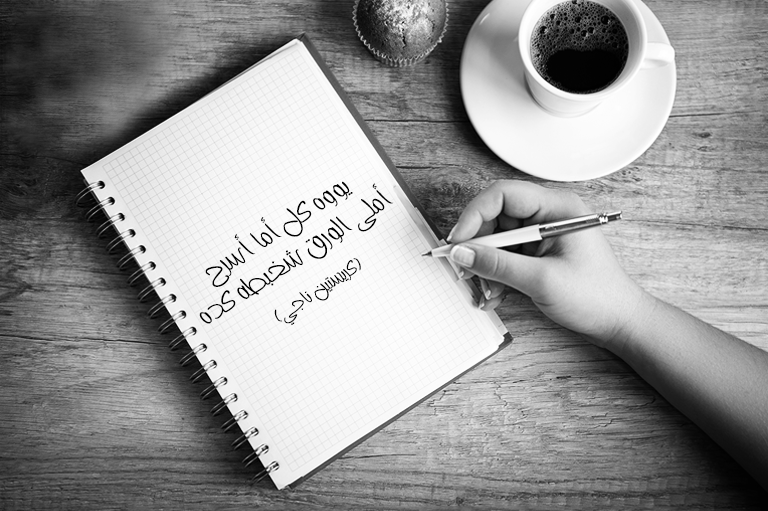 يووه كل أما أسرح
أملى الورق شخبطه كده
(كريستين ناجي)